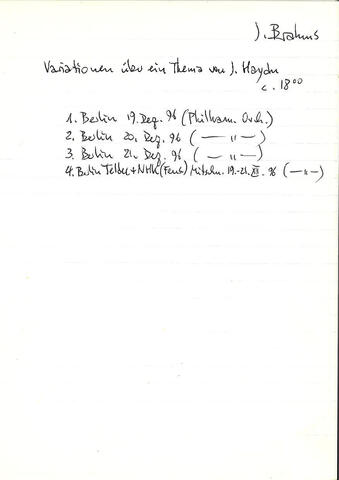 J. Brahms
Variationen über ein Thema von J. Haydn
c. 18⁰⁰
1. Berlin 19. Dez. 96 (Philharm. Orch.)
2. Berlin 20. Dez. 96 ( — " — )
3. Berlin 21. Dez. 96 ( — " — )
4. Berlin Teldec + NHK (Fens) Mitschn. 19.-21. XII. 96 ( — " — )